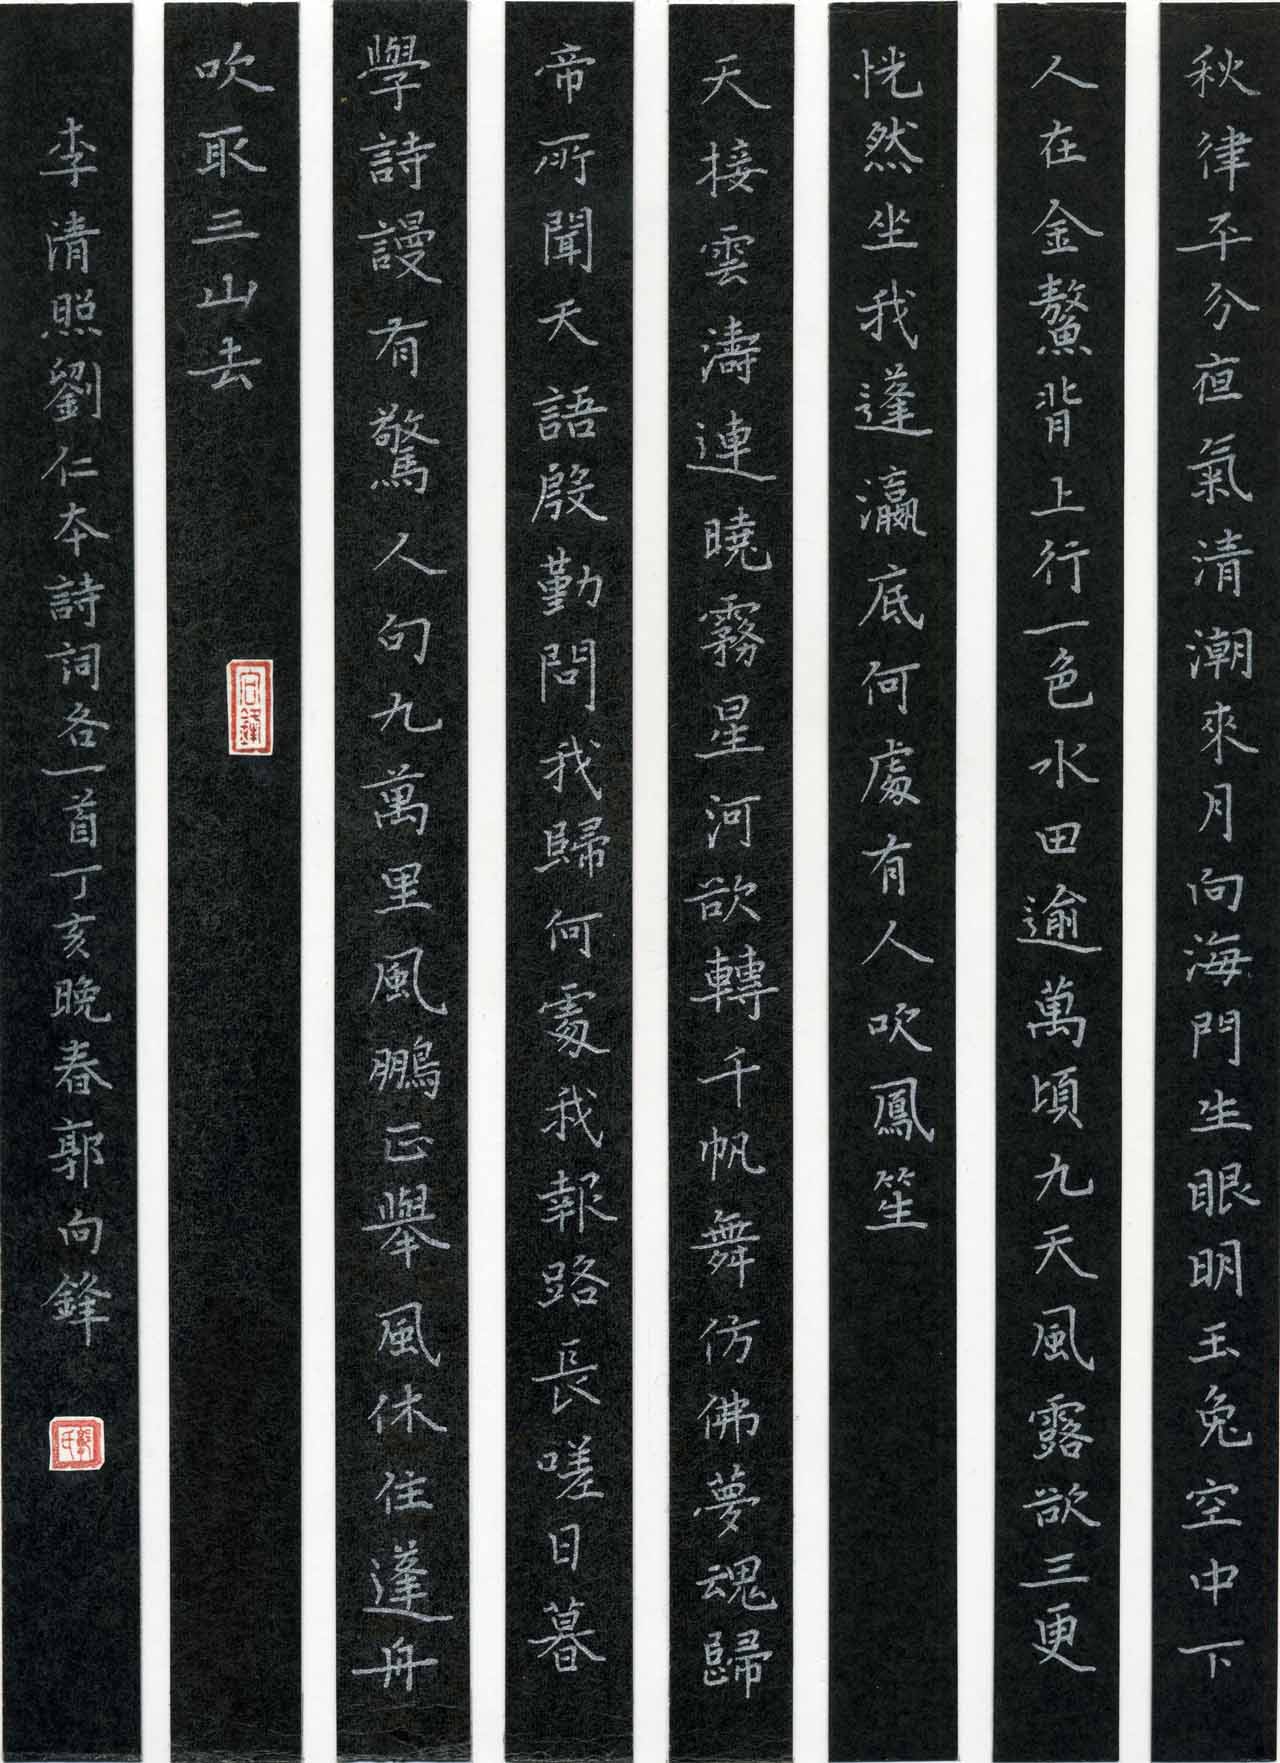 秋律平分夜氣清潮來月向海門生眼明玉兔空中下
人在金鰲背上行一色水田逾萬頃九天風露欲三更
恍然坐我蓬瀛底何處有人吹鳳笙
天接雲濤連曉霧星河欲轉千帆舞仿佛夢魂歸
帝所聞天語殷勤問我歸何處我報路長嗟日暮
學詩謾有驚人句九萬里風鵬正舉風休住蓬舟
吹取三山去
李清照劉仁本詩詞各一首丁亥晚春郭向鋒